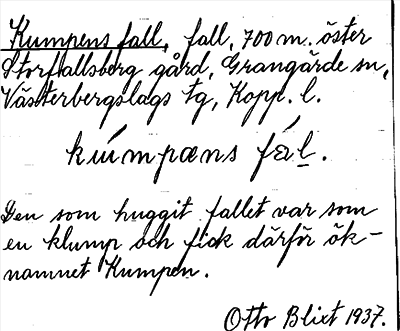 Kumpens fall, fall, 700 m. öster
Storfallsberg gård, Grangärde sn,
Västerbergslags tg, Kopp. l.
kúmpæns fál.
Den som huggit fallet var som
en klump och fick därför ök-
namnet Kumpen.
Otto Blixt 1937.